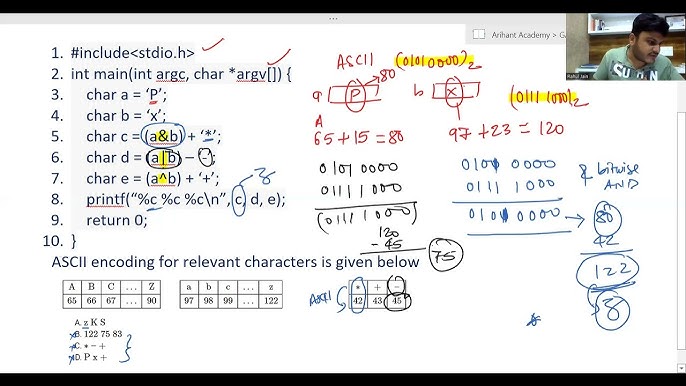 Arihant Academy > GA
Rahul Jain
1. #include<stdio.h>
2. int main(int argc, char *argv[]) {
3. char a = ‘P’;
4. char b = ‘x’;
5. char c = (a&b) + ‘*’;
6. char d = (a|b) – ‘-’;
7. char e = (a^b) + ‘+’;
8. printf(“%c %c %c\n”, c, d, e);
9. return 0;
10. }
ASCII encoding for relevant characters is given below
A B C … Z
65 66 67 … 90
a b c … z
97 98 99 … 122
* + −
42 43 45
A. z K S
B. 122 75 83
C. * − +
D. P x +
ASCII (0101 0000)2
80
a P b x
(0111 1000)2
A
65 + 15 = 80
97 + 23 = 120
0101 0000
01111 000
(01111 000)
120
- 45
75
0101 0000
0111 1000
0101 0000
& bitwise AND
80
42
122
z
8
ASCII
*